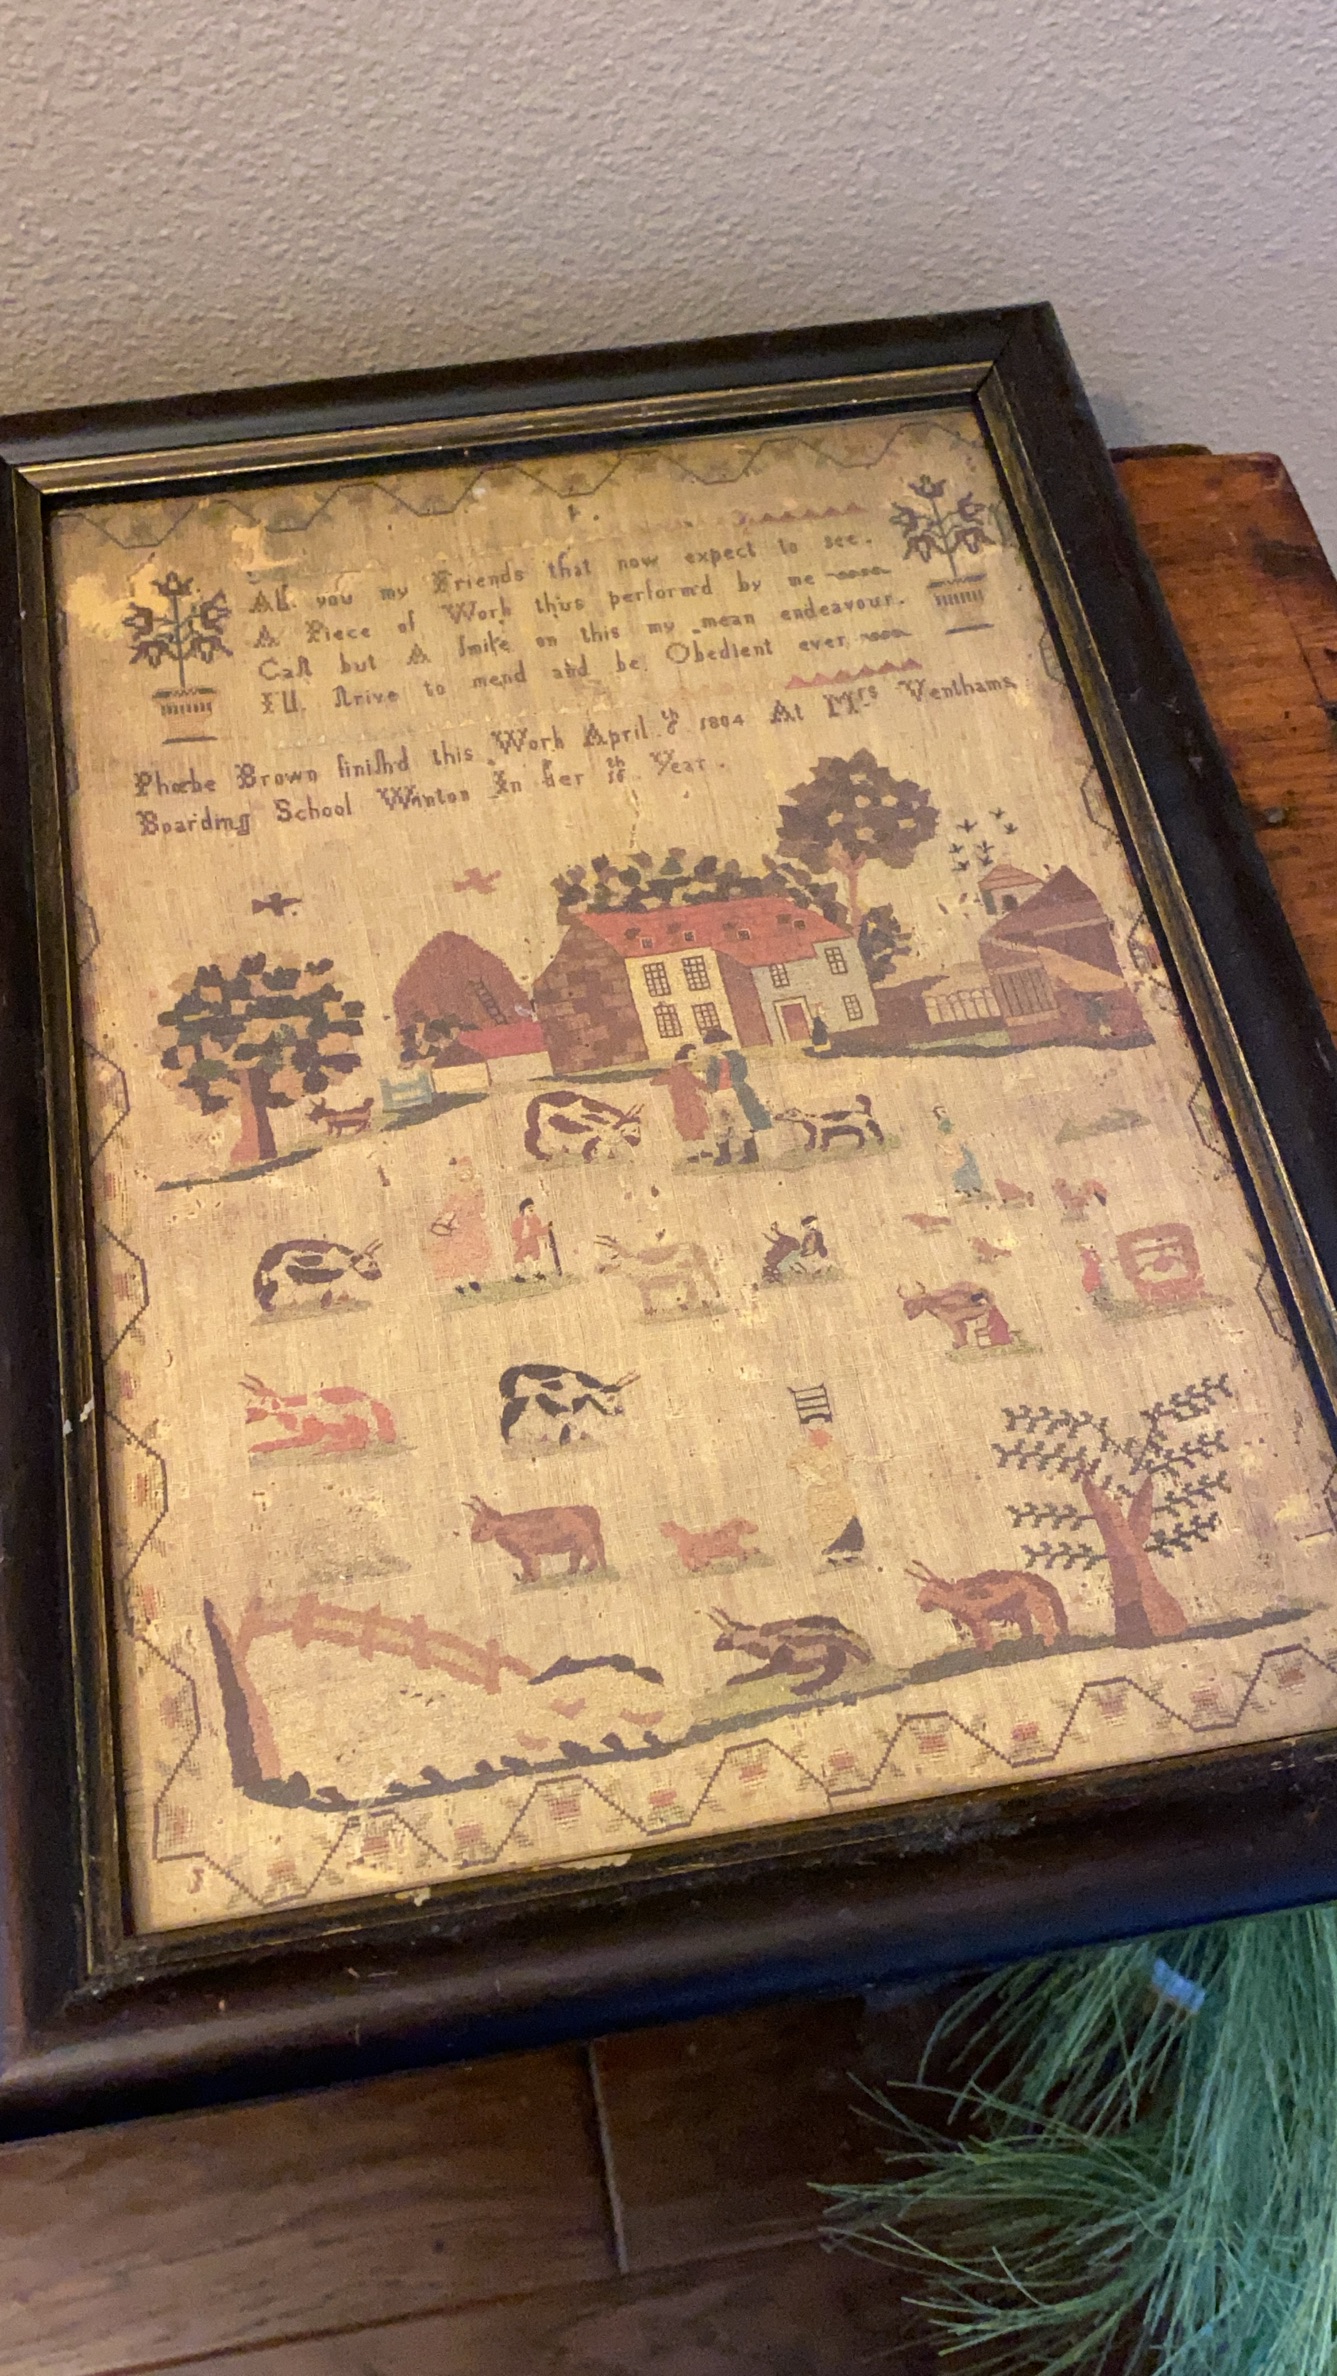 All you my Friends that now expect to see.
A Piece of Work thus perform'd by me
Cast but A Smile on this my mean endeavour.
I'll strive to mend and be Obedient ever
Phœbe Brown finish'd this Work April 8th 1804 At Mrs Venthams
Boarding School Winton In her 16th Year.